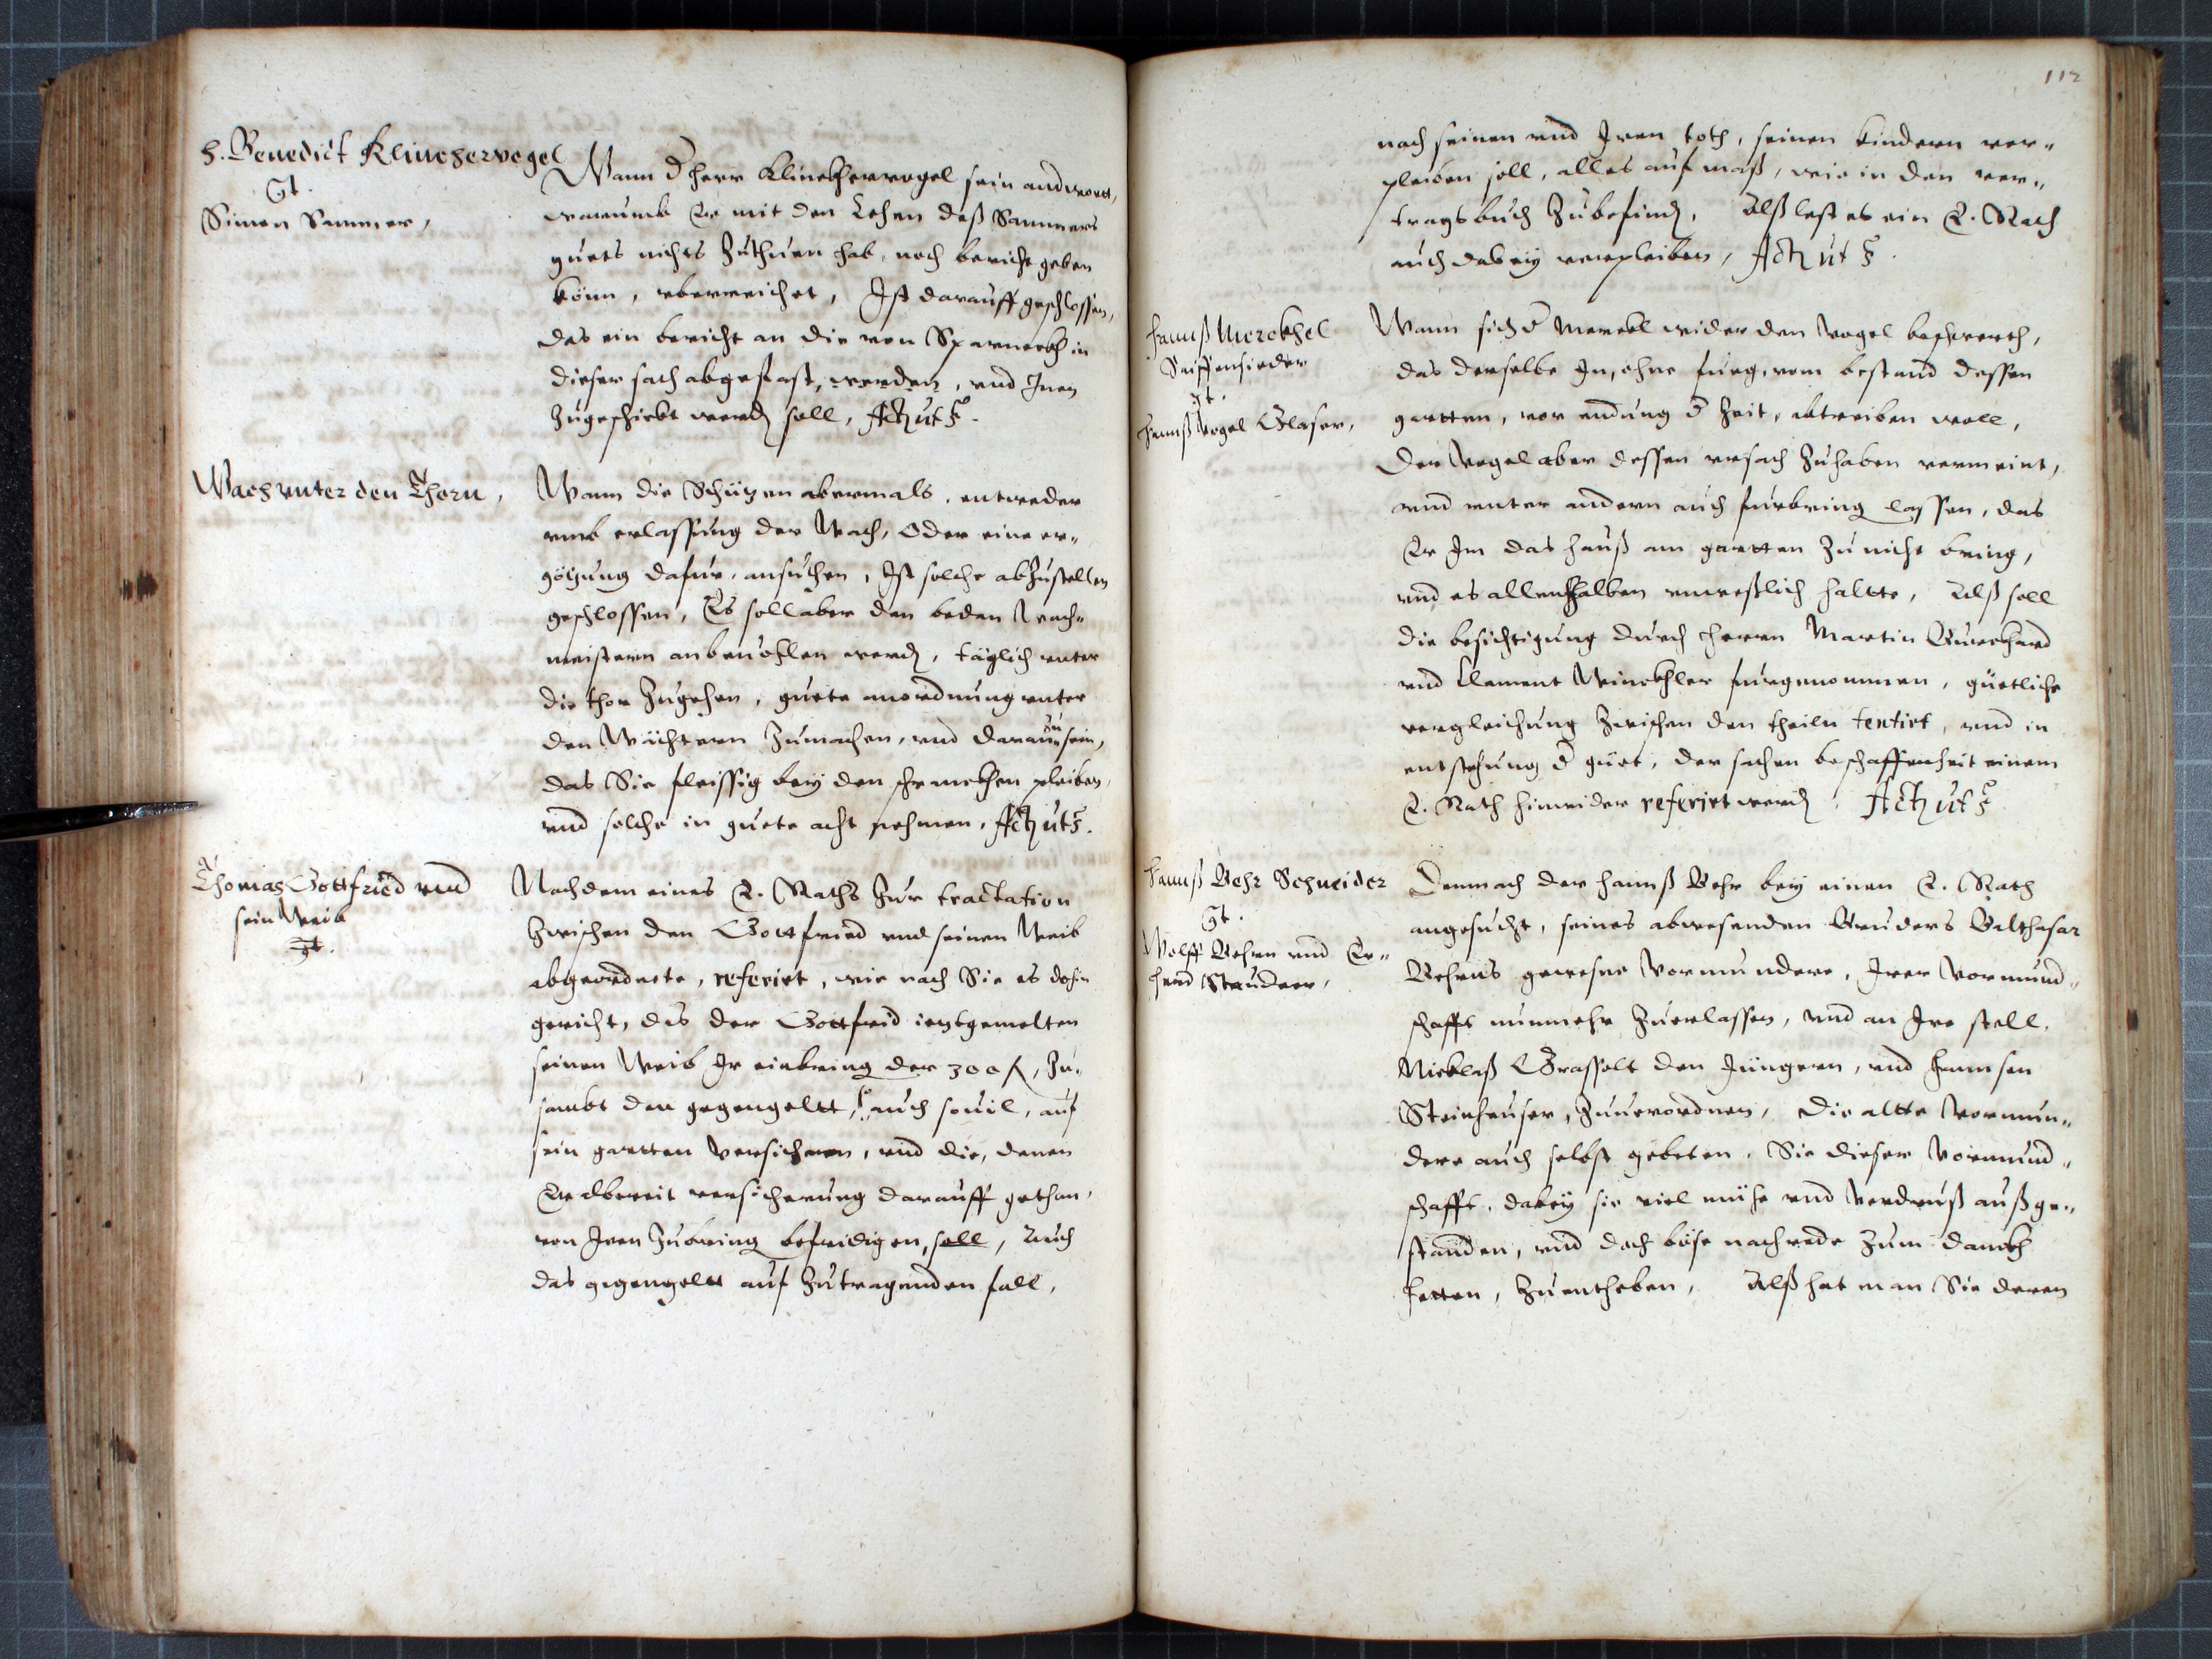 H. Benedict Klinckervogel
Ct.
Simon Sammer,
Wann d herr Klinckhervogel sein andwort,
warumb Er mit den Lehen deß Sammers
guets nichts zuthuen hab, noch bericht geben
könn, vberreichet, Ist darauff geschlossen,
das ein bericht an die von Sparneckh in
dieser sach abgefast, werden, vnd Inen
zugeschickt werd soll, Act. ut s.
Wach vnter den Thorn,
Wann die Schützen abermals, entweder
vmb erlassung der Wach, oder eine er„
götzung dafur, ansuchen, Ist solche abzustellen
geschlossen, Es soll aber den beden Wach„
meistern anbeuohlen werd, täglich vnter
die thor zugehen, guete anordnung vnter
den Wächtern zumachen, vnd daran zu sein,
das Sie fleissig bey den schranckhen pleiben,
vnd solche in guete acht nehmen, Act. ut s.
Thomas Gottfried vnd
sein Weib
Ct.
Nachdem eines E. Raths zur tractation
zwischen den Gottfried vnd seinen Weib
abgeordnete, referirt, wie nach Sie es dohin
gericht, das der Gottfrid ieztgemelten
seinen Weib Ir einbring der 300 f, zu„
sambt den gegengeltt, so auch souil, auf
sein gartten versichern, vnd die, denen
Er albereit versicherung darauff gethan,
von Iren zubring befridigen, soll, Auch
das gegengeltt auf zutragenden fall,
112
nach seinen vnd Iren toth, seinen kindern ver„
pleiben soll, alles auf maß, wie in den ver„
tragsbuch zubefind, Alß lest es ein E. Rath
auch dabey verpleiben, Act. ut s.
Hannß Merckhel
Seiffensieder
Ct.
Hannß Vogel Glaser,
Wann sich d Merckl wider den Vogel beschwerth,
das derselbe In, ohne fueg, vom bestand dessen
gartten, vor endung d Zeit, abtreiben woll,
Der Vogel aber dessen vrsach zuhaben vermeint,
vnd vnter andern auch furbring lassen, das
Er Im das hauß am gartten zu nicht bring,
vnd es allenthalben vnweßlich haltte, Alß soll
die besichtigung durch herrn Martin Burckhard
vnd Clement Winckhler furgenommen, güetliche
vergleichung zwischen den theiln tentirt, vnd in
entstehung d güet, der sachen beschaffenheit einem
E. Rath hinwider referirt werd, Act. ut s.
Hannß Behr Schneider
Ct.
Wolff Behrn vnd Er„
hard Strudeer,
Demnach der hannß Behr bey einen E. Rath
angesucht, seines abwesenden Bruders Balthasar
Behrns gewesne Vormundere, Irer Vormund„
schafft nunmehr zuerlassen, vnd an Ire stell,
Nicklaß Grassolt den Jüngern, vnd Hannsen
Steinheuser, zuuerordnen, Die altte Vormun„
dere auch selbst gebeten, Sie dieser Vormund„
schafft, dabey sie viel mühe vnd Verdruß außge„
standen, vnd doch böse nachrede zum danckh
hetten, zuentheben, Alß hat man Sie deren